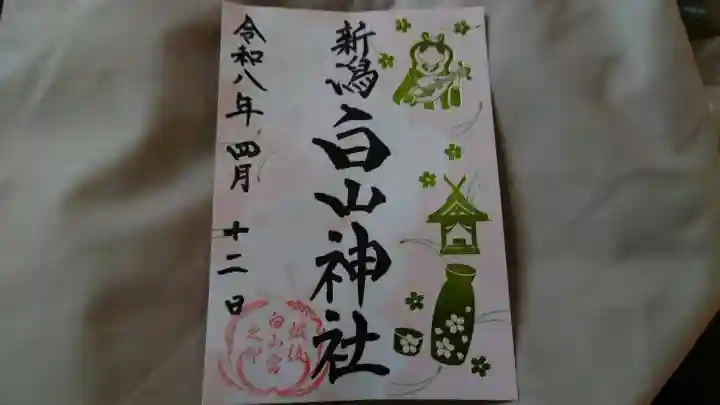 新潟白山神社
令和八年四月十二日
越後
白山宮
之印